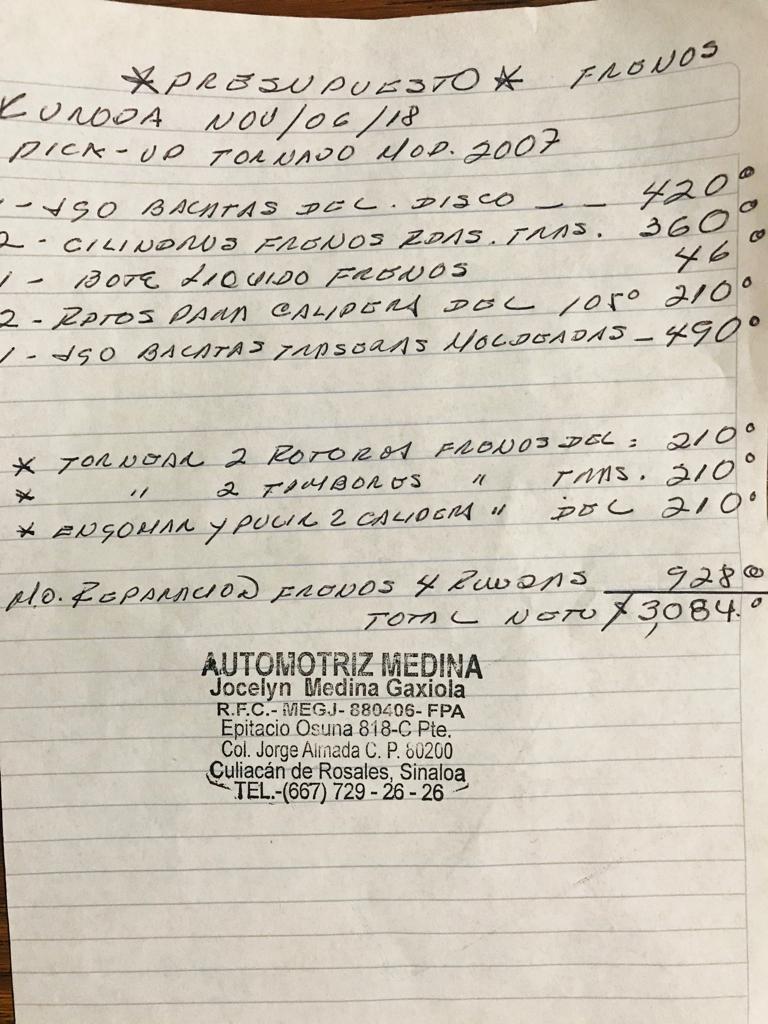 *PRESUPUESTO* FRENOS
KURODA NOV/06/18
PICK-UP TORNADO MOD. 2007
1- JGO BALATAS DEL. DISCO -- 420°
2- CILINDROS FRENOS RDAS. TRAS. 360°
1- BOTE LIQUIDO FRENOS 46°
2- RPTOS PARA CALIPERS DEL 105° 210°
1- JGO BALATAS TRASERAS MOLDEADAS - 490°
* TORNEAR 2 ROTORES FRENOS DEL: 210°
* " 2 TAMBORES " TRAS. 210°
* ENGOMAR Y PULIR 2 CALIPERS " DEL 210°
M.O. REPARACION FRENOS 4 RUEDAS 928.00
TOTAL NETO $3,084.°
AUTOMOTRIZ MEDINA
Jocelyn Medina Gaxiola
R.F.C.- MEGJ- 880406- FPA
Epitacio Osuna 818-C Pte.
Col. Jorge Almada C. P. 80200
Culiacán de Rosales, Sinaloa
TEL.-(667) 729 - 26 - 26